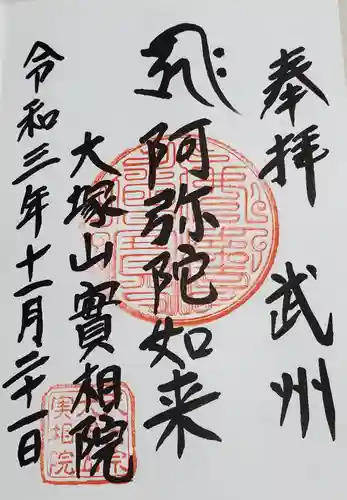 奉拝 武州
𑖮𑖿𑖨𑖱𑖾 阿弥陀如来
大塚山實相院
令和三年十一月二十一日
実相院